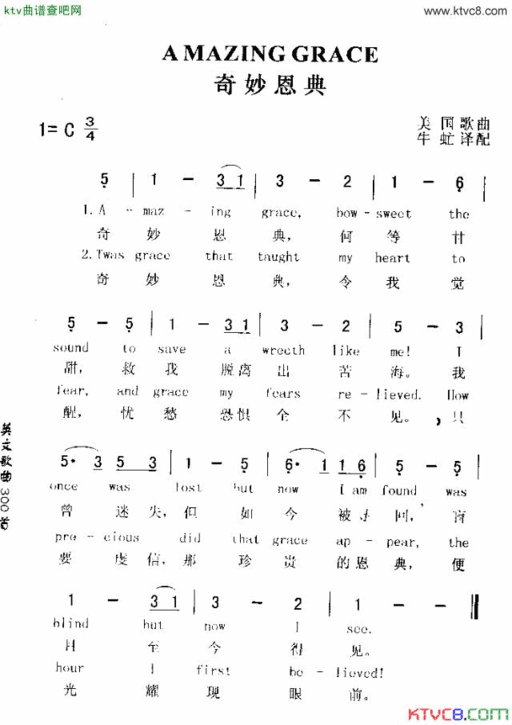 ktv曲谱查吧网
www.ktvc8.com
AMAZING GRACE
奇妙恩典
1=C 3/4
美国歌曲
牛虻译配
5 | 1 - 3 1 | 3 - 2 | 1 - 6 |
1.A - maz - ing grace, how-sweet the
奇 妙 恩 典, 何 等 甘
2.Twas grace that taught my heart to
奇 妙 恩 典, 令 我 觉
5 - 5 | 1 - 3 1 | 3 - 2 | 5 - 3 |
sound to save a wrecth like me! I
甜, 救 我 脱 离 出 苦 海。我
fear, and grace my fears re-lieved. How
醒, 忧 愁 恐 惧 全 不 见。, 只
5· 3 5 3 | 1 - 5 | 6· 1 1 6 | 5 - 5 |
once was lost but now I am found was
曾 迷 失, 但 如 今 被 回, 盲
pre - cious did that grace ap - pear, the
要 虔 信, 那 珍 贵 的 恩 典, 便
1 - 3 1 | 3 - 2 | 1 - - ‖
blind but now I see.
目 至 今 得 见。
hour I first be - lieved!
光 耀 现 眼 前。
英文歌曲300首
KTVC8.COM